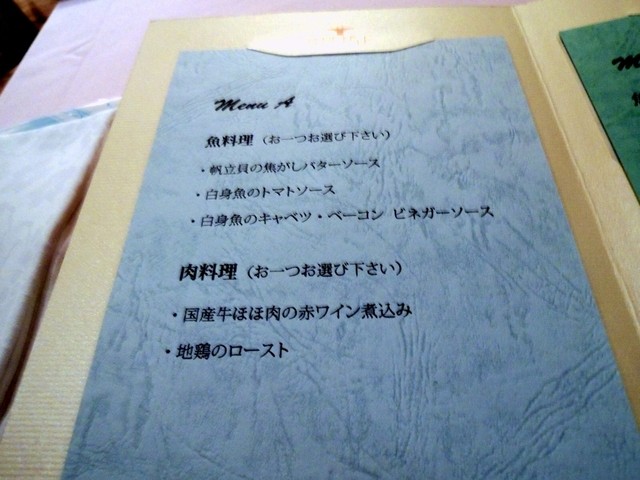 Menu A
魚料理（お一つお選び下さい）
・帆立貝の焦がしバターソース
・白身魚のトマトソース
・白身魚のキャベツ・ベーコン ビネガーソース
肉料理（お一つお選び下さい）
・国産牛ほほ肉の赤ワイン煮込み
・地鶏のロースト